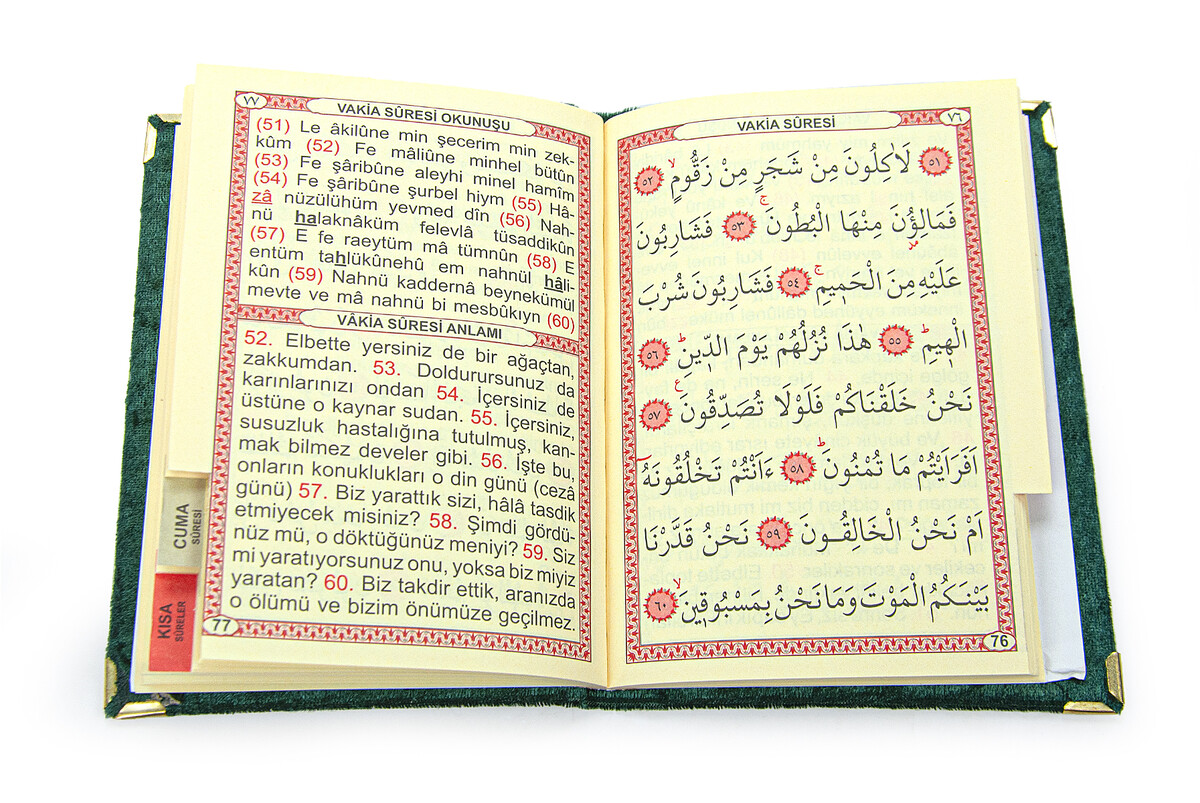 ٧٧
VAKİA SÛRESİ OKUNUŞU
(51) Le âkilûne min şecerim min zek-
kûm (52) Fe mâliûne minhel bütûn
(53) Fe şâribûne aleyhi minel hamîm
(54) Fe şâribûne şurbel hiym (55) Hâ-
zâ nüzülühüm yevmed dîn (56) Nah-
nü halaknâküm felevlâ tüsaddikûn
(57) E fe raeytüm mâ tümnûn (58) E
entüm tahlükûnehû em nahnül hâli-
kûn (59) Nahnü kaddernâ beynekümül
mevte ve mâ nahnü bi mesbûkıyn (60)
VÂKİA SÛRESİ ANLAMI
52. Elbette yersiniz de bir ağaçtan,
zakkumdan. 53. Doldurursunuz da
karınlarınızı ondan 54. İçersiniz de
üstüne o kaynar sudan. 55. İçersiniz,
susuzluk hastalığına tutulmuş, kan-
mak bilmez develer gibi. 56. İşte bu,
onların konuklukları o din günü (cezâ
günü) 57. Biz yarattık sizi, hâlâ tasdik
etmiyecek misiniz? 58. Şimdi gördü-
nüz mü, o döktüğünüz meniyi? 59. Siz
mi yaratıyorsunuz onu, yoksa biz miyiz
yaratan? 60. Biz takdir ettik, aranızda
o ölümü ve bizim önümüze geçilmez.
77
CUMA
SÛRESİ
KISA
SÛRELER
VAKİA SÛRESİ
٧٦
٥١ لَاٰكِلُونَ مِنْ شَجَرٍ مِنْ زَقُّومٍۙ ٥٢
فَمَالِؤُ۫نَ مِنْهَا الْبُطُونَۚ ٥٣ فَشَارِبُونَ
عَلَيْهِ مِنَ الْحَم۪يمِۚ ٥٤ فَشَارِبُونَ شُرْبَ
الْه۪يمِۜ ٥٥ هٰذَا نُزُلُهُمْ يَوْمَ الدّ۪ينِۜ ٥٦
نَحْنُ خَلَقْنَاكُمْ فَلَوْلَا تُصَدِّقُونَ ٥٧
اَفَرَاَيْتُمْ مَا تُمْنُونَۜ ٥٨ ءَاَنْتُمْ تَخْلُقُونَهُٓ
اَمْ نَحْنُ الْخَالِقُونَ ٥٩ نَحْنُ قَدَّرْنَا
بَيْنَكُمُ الْمَوْتَ وَمَا نَحْنُ بِمَسْبُوق۪ينَۙ ٦٠
76